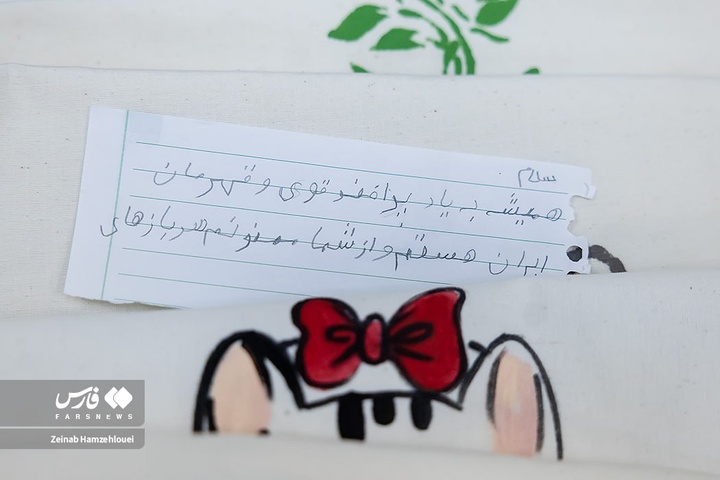 سلام
همیشه به یاد قوی و قهرمان
ایران هستیم و از شما ممنونم سربازهای
فارس
FARSNEWS
Zeinab Hamzehlouei